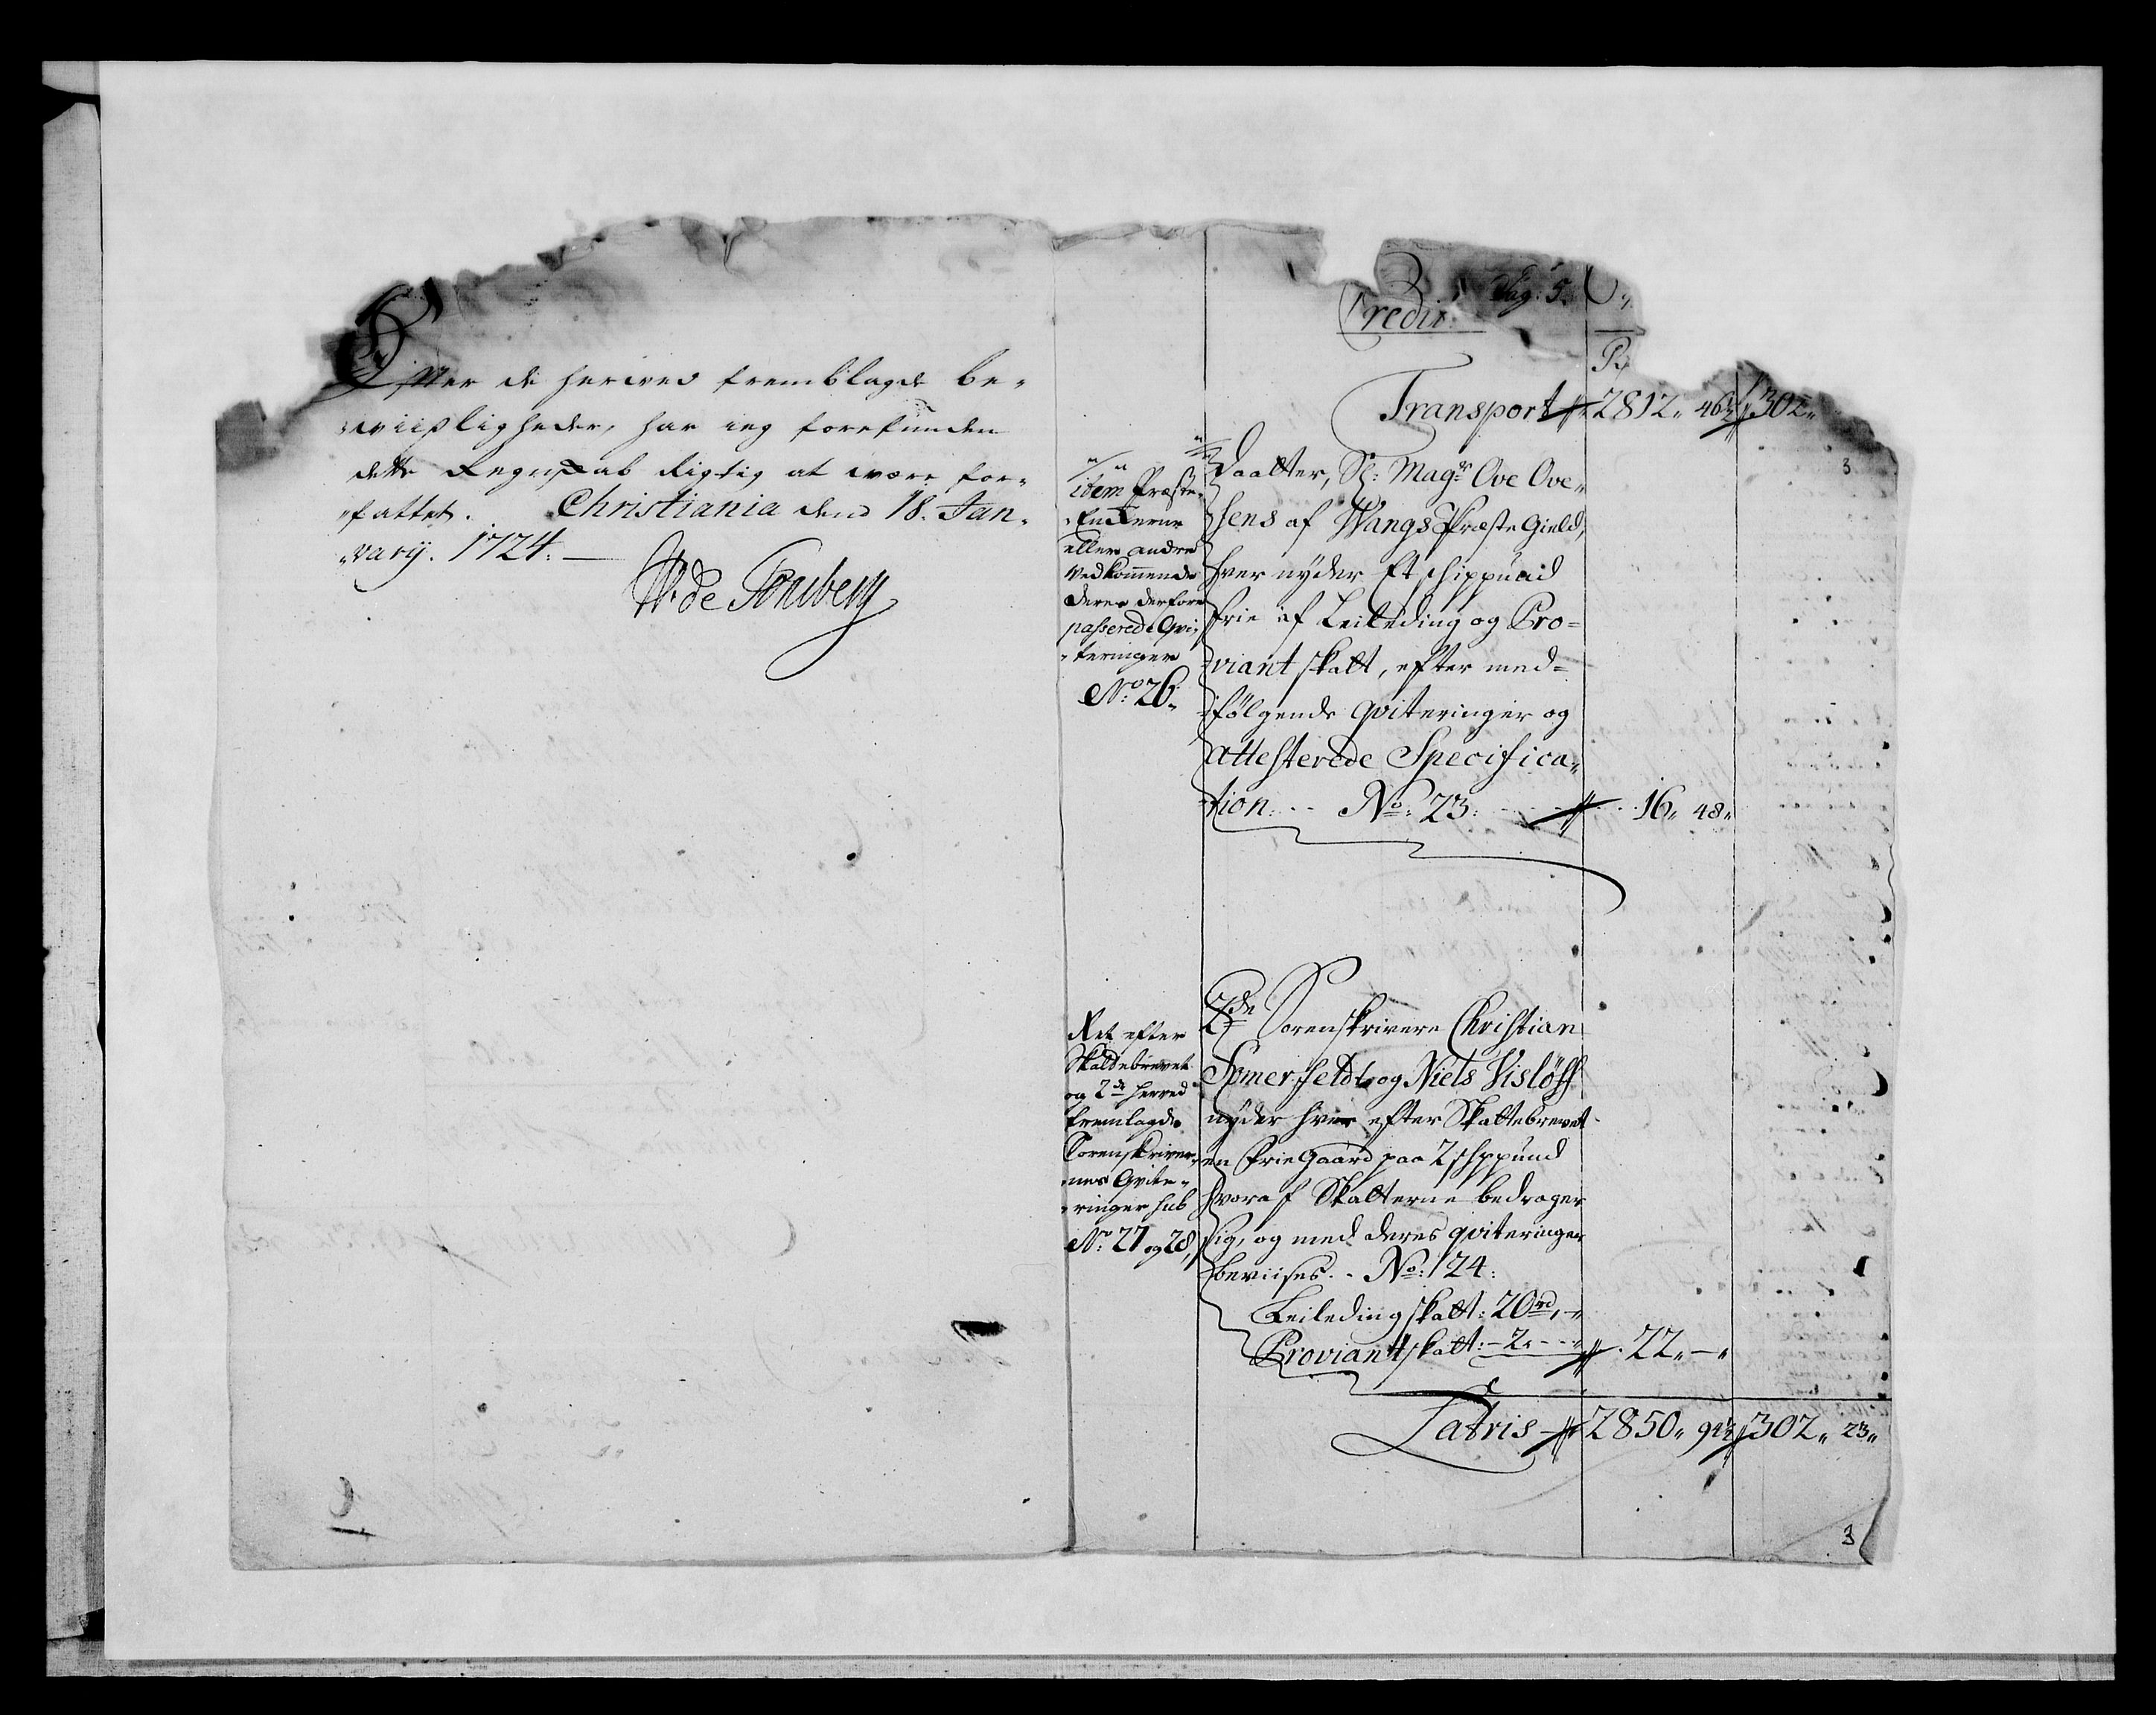 Efter de herved fremblagde be„
„viisligheder, har ieg forefunden
dette Regnskab Rigtig at være for„
„fattet. Christiania den 18. Jan„
„varij. 1724.
Credit Pag: 5.
Transport 2812„ 46½ 302„
3
idem Præste„
„Enkerne
eller andre
vedkommende
deres derfore
passerede Qvi„
„teringer
No: 26„
Daatter, Sl: Magr Ove Ove„
sens af Wangs Præste Gield,
hver nyder Et schippund
frie af Leileding og Pro=
viant skatt, efter med=
følgende qviteringer og
attesterede Specifica„
tion... No: 23. 16„ 48„
Ret efter
Skattebrevet
og 2de herved
fremlagde
Sorenskriver„
„nes Qvite„
„ringer sub
No: 27 og 28,
2de Sorenskrivere Christian
Somerfeldt og Niels Visløff
nyder hver efter Skattebrevet
en frie Gaard paa 2 schppund
hvoraf Skatterne bedrager
sig, og med deres qviteringer
beviises.. No: 24:
Leileding skatt: 20rd„
Proviantskatt: – 2„ 22„ – „
Latris 2850„ 94½ 302„ 23„
3